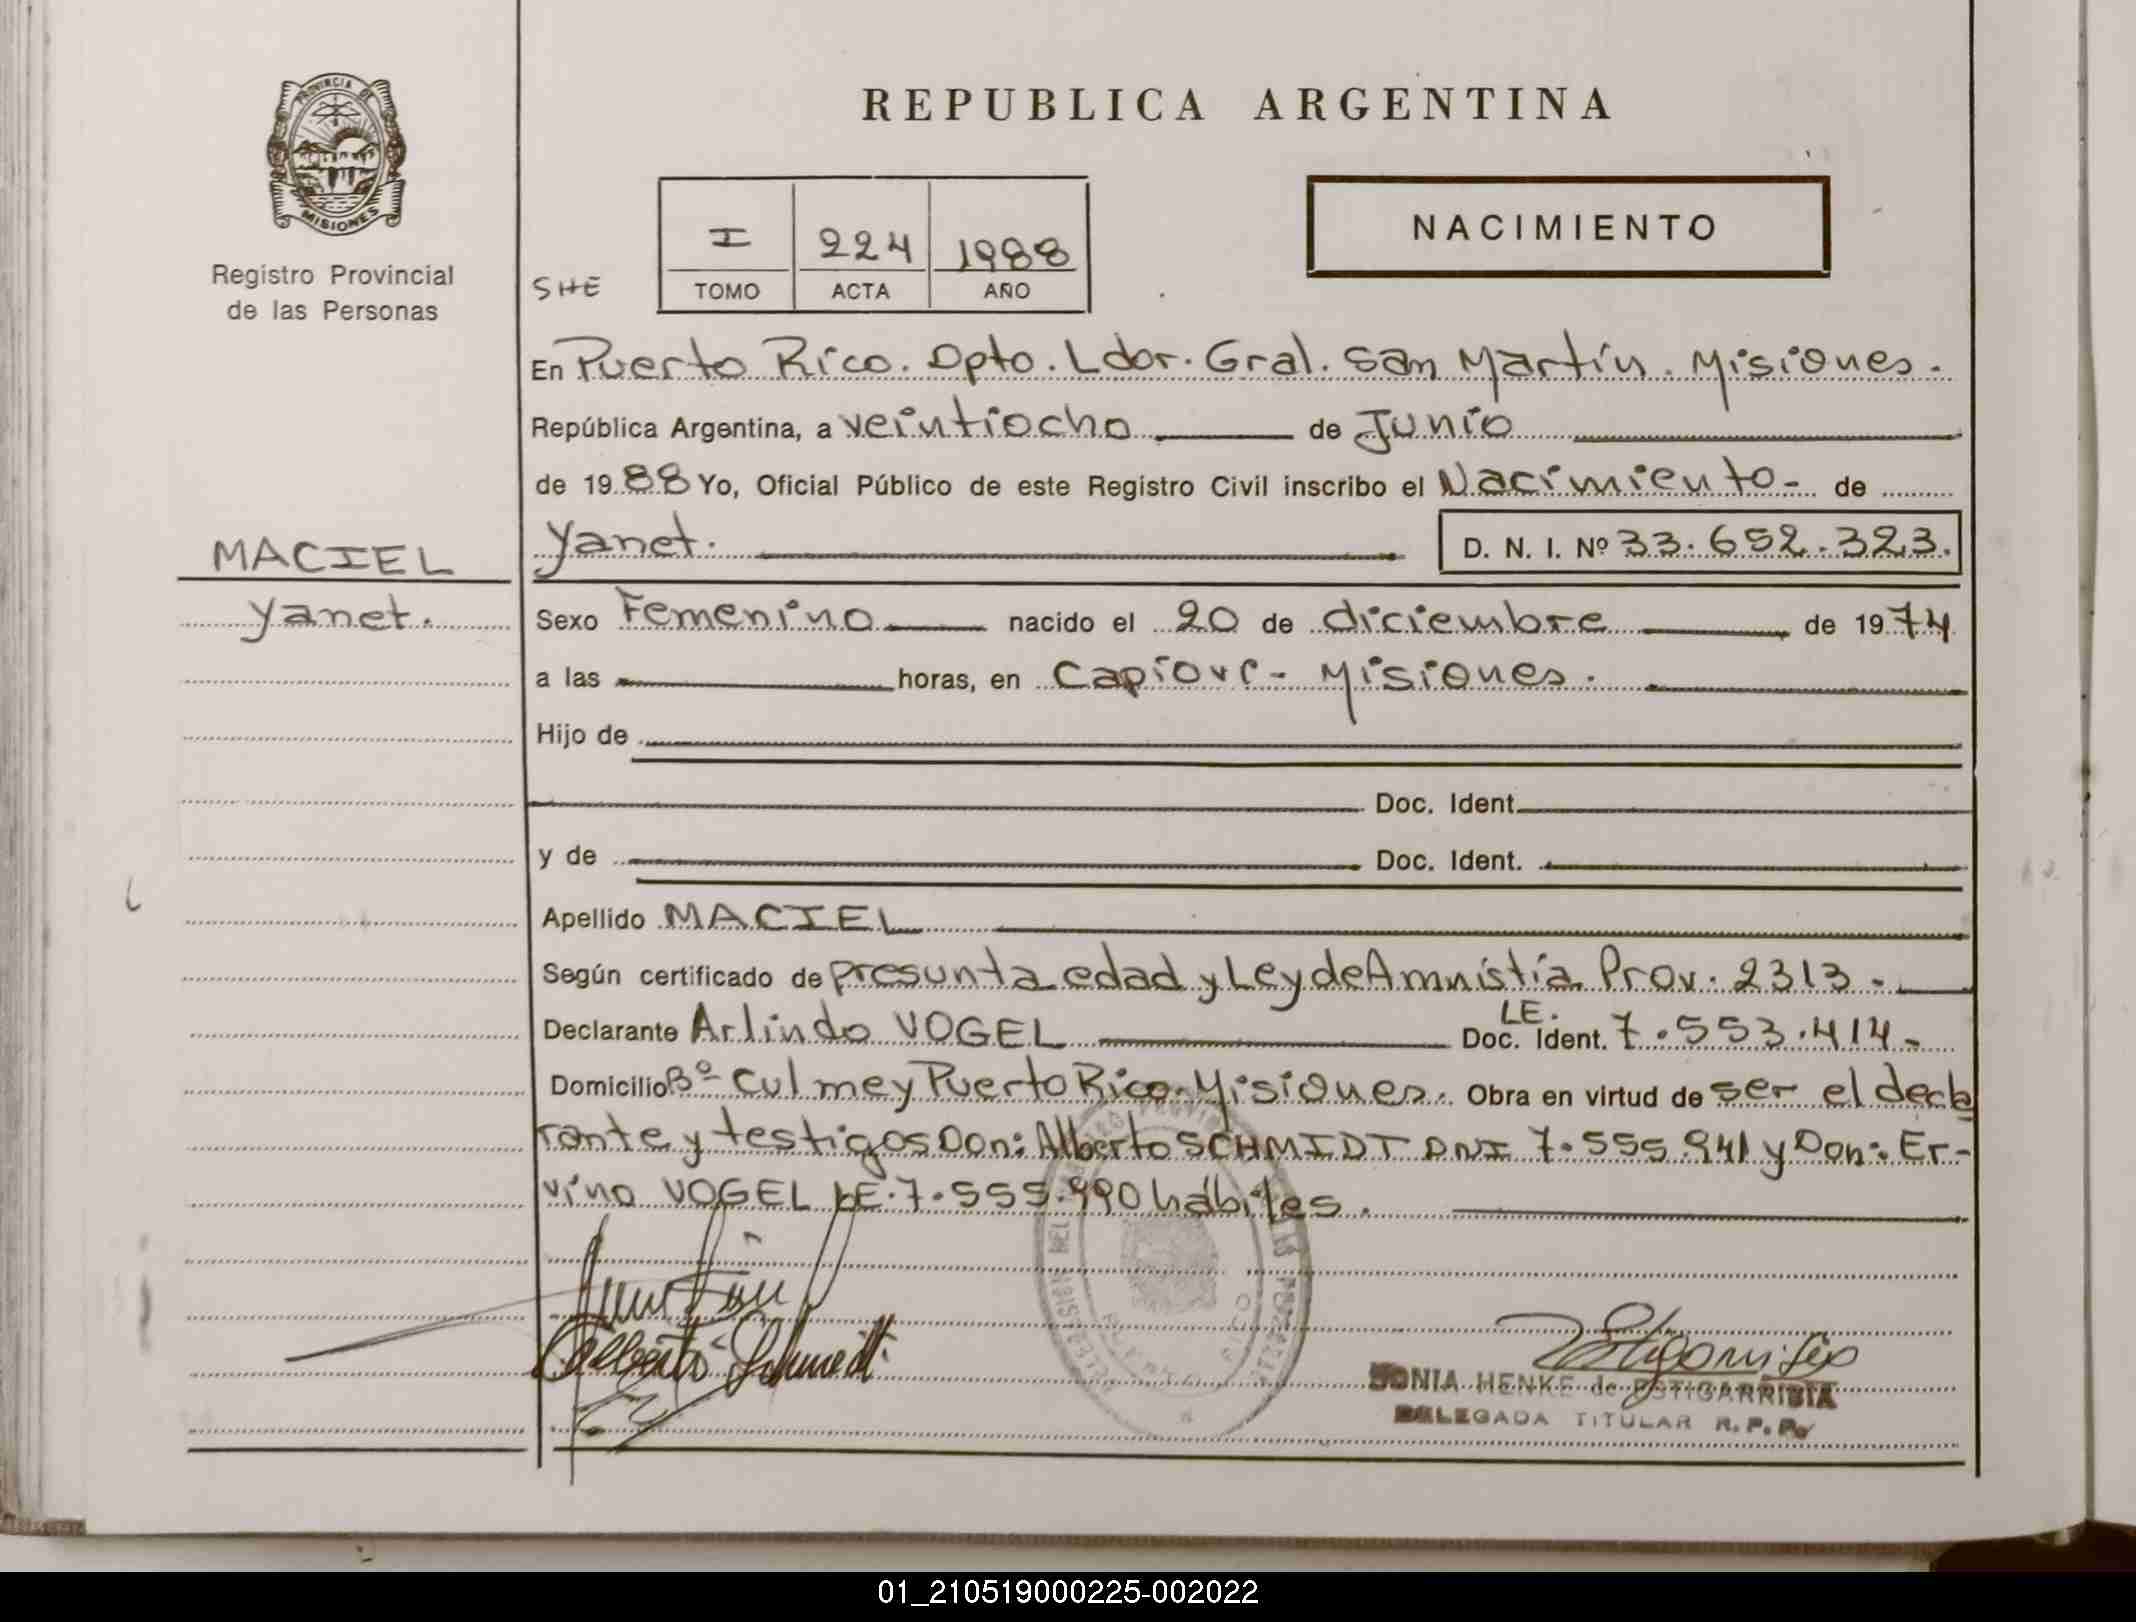 REPUBLICA ARGENTINA
PROVINCIA DE
MISIONES
Registro Provincial
de las Personas
NACIMIENTO
I 224 1988
TOMO ACTA AÑO
SHE
En Puerto Rico. Dpto. Ldor. Gral. San Martín. Misiones.
República Argentina, a veintiocho de Junio
de 1988 Yo, Oficial Público de este Registro Civil inscribo el Nacimiento- de
Yanet. D. N. I. Nº 33.652.323.
MACIEL
Yanet.
Sexo Femenino nacido el 20 de diciembre de 1974
a las horas, en Capiovi- Misiones.
Hijo de
Doc. Ident.
y de Doc. Ident.
Apellido MACIEL
Según certificado de presunta edad y Ley de Amnistía Prov. 2313.-
Declarante Arlindo VOGEL Doc. Ident. LE. 7.553.414.-
Domicilio Bº Culmey Puerto Rico. Misiones. Obra en virtud de ser el decla
rante y testigos Don: Alberto SCHMIDT DNI 7.555.941 y Don: Er-
vino VOGEL LE. 7.555.990 hábiles.
Alberto Schmidt
SONIA HENKE de ESTIGARRIBIA
DELEGADA TITULAR R. P. P.
01_210519000225-002022